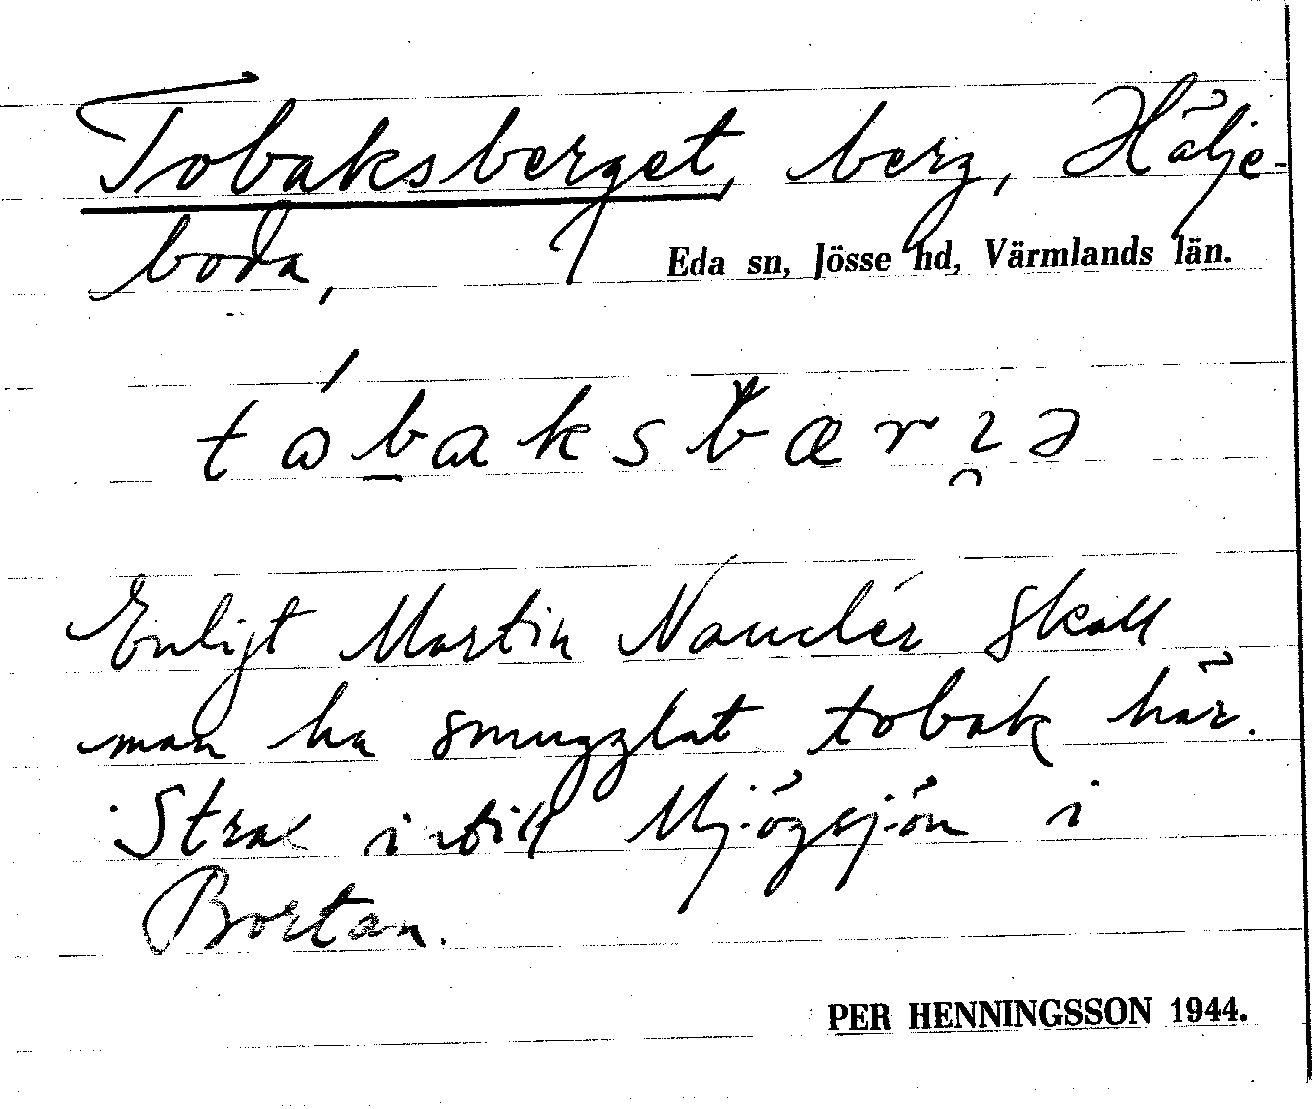 Tobaksberget, berg, Hälje-
boda, Eda sn, Jösse hd, Värmlands län.
tobaksbærɪə
Enligt Martin Nandér skall
man ha smugglat tobak här.
Strax intill Mjögsjön i
Bortan.
PER HENNINGSSON 1944.